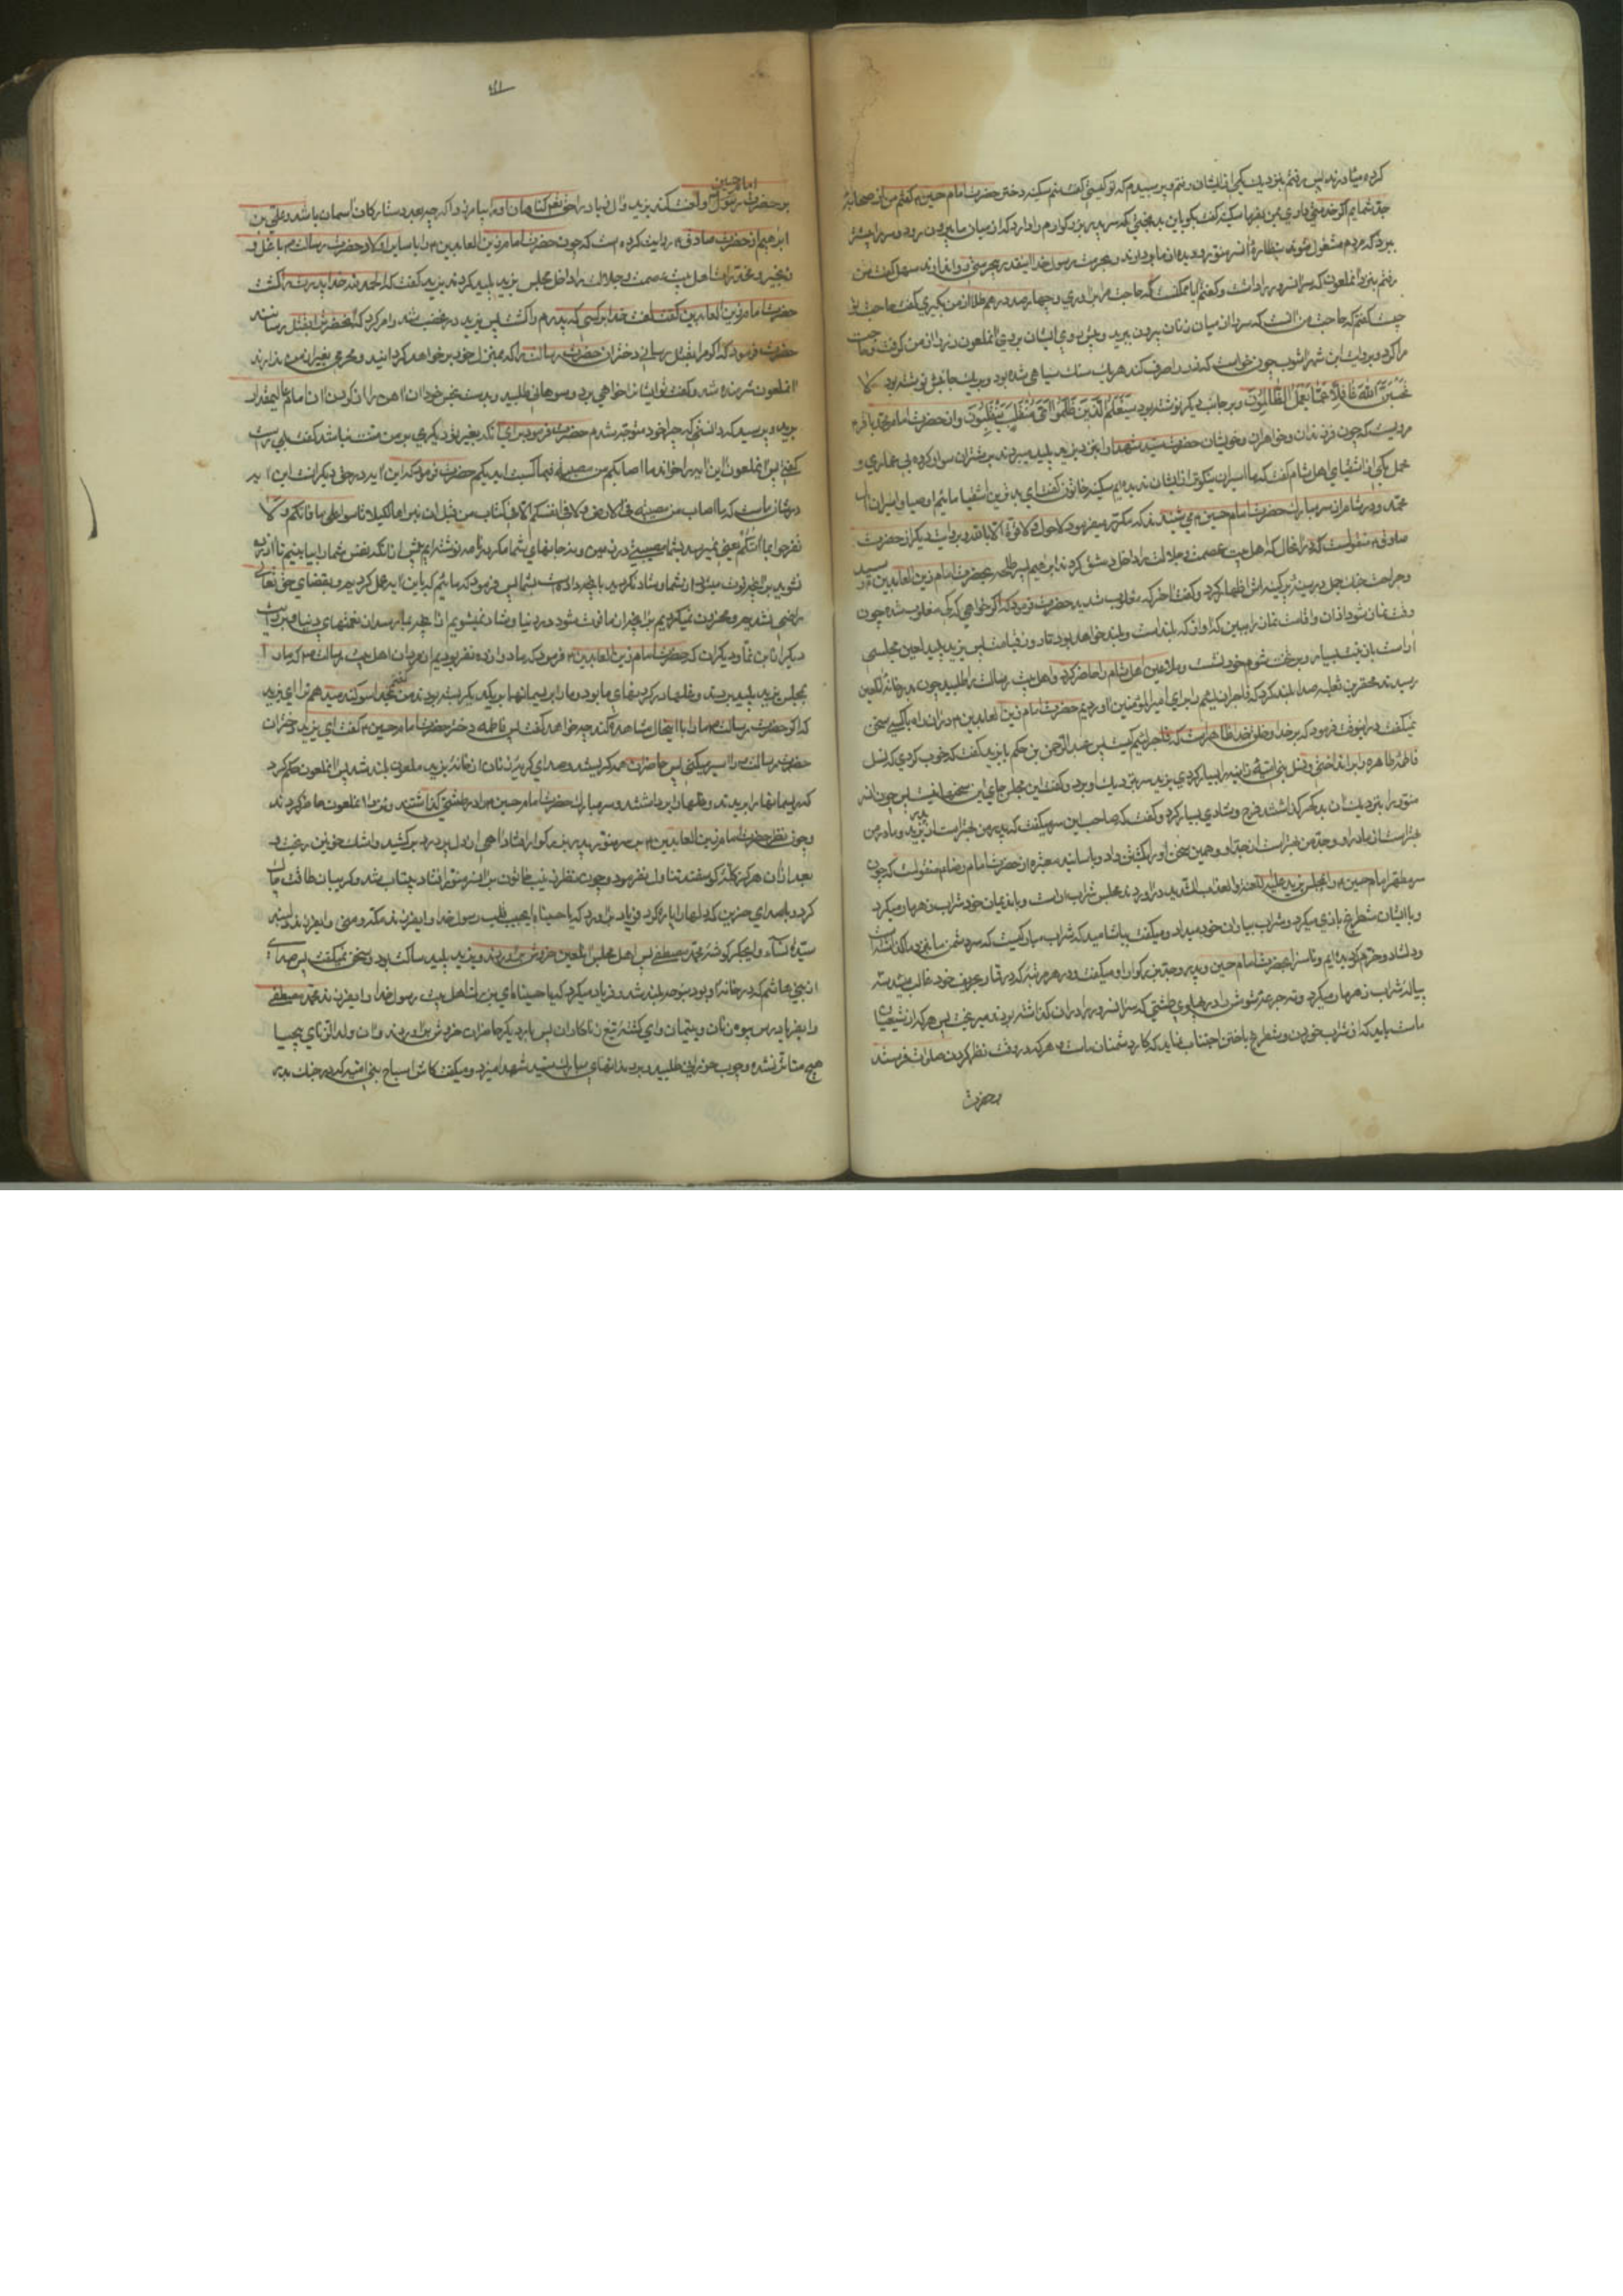 کرده میاورند پس رفتم بنزدیک یکی از ایشان رفتم و پرسیدم که تو کیستی گفت منم سکینه دختر حضرت امام حسین ع گفتم من از صحابهٔ
جد شمایم اگر خدمتی داری بمن بفرما سکینه گفت بگو باین بدبختی که سر پدر بزرگوارم را دارد که از میان ما بیرون رود و سر را پیشتر
برد که مردم مشغول شوند بنظارهٔ آن سر منور و دیده از ما بردارند و بحرمت رسول خدا اینقدر بیحرمتی روا ندارند سهل گفت من
رفتم بنزد آن ملعون که سر آن سرور را داشت و گفتم آیا ممکنست که حاجت مرا برآوری و چهارصد درهم طلا از من بگیری گفت حاجت تو
چیست گفتم که حاجت من آنست که سر را از میان زنان بیرون برید و پیش روی ایشان بری آن ملعون زر را از من گرفت و حاجت
مرا کرد و بروایت ابن شهرآشوب چون خواست که زر را صرف کند هر یک سنک سیاهی شده بود و بر یک جانبش نوشته بود و لا
تحسبن الله غافلا عما یعمل الظالمون و بر جانب دیگر نوشته بود سیعلم الذین ظلموا ای منقلب ینقلبون و از حضرت امام محمد باقر ع
مرویست که چون فرزندان و خواهران و خویشان حضرت سید شهدا را نزد یزید پلید میبردند بر شتران سوار کرده بی عماری و
محمل یکی از اشقیای اهل شام گفت که ما اسیران نیکوتر از ایشان ندیده‌ایم سکینه خاتون گفت ای بدترین اشقیا مائیم اوصیا و اسیران آل
محمد و در شام از سر مبارک حضرت امام حسین ع می شنیدند که مکرر میفرمود لا حول و لا قوة الا بالله و بروایت دیگر از حضرت
صادق ع منقولست که در آنحال که اهل بیت عصمت و جلالت را داخل دمشق کردند ابراهیم پسر طلحه بحضرت امام زین العابدین ع رسید
و جراحت جنک جمل در سینهٔ پرکینه‌اش اظهار کرد و گفت آخر که مغلوب شدید حضرت فرمود که اگر خواهی که که مغلوب شده چون
وقت نماز شود اذان و اقامت نماز را ببین که آوازهٔ که بلند است و بلند خواهد بود تا روز قیامت پس یزید پلید لعین مجلسی
آراست با زینت بسیار و بر تخت شوم خود نشست و ملاعین اهل شام را حاضر کرد و اهل بیت رسالت را طلبید چون بدر خانهٔ آن لعین
رسیدند محقر بن ثعلبه صدا بلند کرد که فاجران لئیم را برای امیر المؤمنین آوردیم حضرت امام زین العابدین ع در آن راه با کسی سخن
نمیگفت در اینوقت فرمود که بر خدا و خلق خدا ظاهر است که فاجر لئیم کیست پس عبدالرحمن بن حکم با یزید گفت که خوب کردی که نسل
فاطمهٔ طاهره را برانداختی و نسل بنی امیهٔ زانیه را بسیار کردی یزید سر بنزدیک او برد و گفت این مجلس جای این سخنها نیست پس چون سر
منور را بنزدیک آن بدگهر گذاشتند فرح و شادی بسیار کرد و گفت که صاحب این سر میگفت که پدر من بهتر است از پدر یزید و مادر من
بهتر است از مادر او و جد من بهتر است از جد او و همین سخن او را بکشتن داد و باسانید معتبره از حضرت امام رضا ع منقولست که چون
سر مطهر امام حسین ع را بمجلس یزید علیه اللعنة و العذاب الشدید درآوردند مجلس شراب آراست و با ندیمان خود شراب زهرمار میکرد
و با ایشان شطرنج بازی میکرد و شراب بیاران خود میداد و میگفت بیاشامید که شراب مبارکیست که سر دشمن ما نزد ما گذاشته است
و دلشاد و خرم گردیده‌ایم و ناسزا بحضرت امام حسین و پدر و جد بزرگوار او میگفت و در هر مرتبه که در قمار بر حریف خود غالب میشد سه
پیاله شراب زهرمار میکرد و ته جرعهٔ شومش را در پهلوی طشتی که سر آن سرور در آن گذاشته بودند میریخت پس هر که از شیعیان
ماست باید که از شراب خوردن و شطرنج باختن اجتناب نماید که کار دشمنان ماست و هر که در وقت نظر کردن صلوات فرستد
بحضرت
امام حسین
بر حضرت رسول ص و لعنت کند یزید و آل زیاد را حق تعالی گناهان او را بیامرزد اگر چه بعدد ستارگان آسمان باشد و علی بن
ابراهیم از حضرت صادق ع روایت کرده است که چون حضرت امام زین العابدین ع را با سایر اولاد حضرت رسالت ص با غل و
زنجیر و مخدرات اهل بیت عصمت و جلالت را داخل مجلس یزید پلید کردند یزید گفت که الحمد لله خدا پدرت را کشت
حضرت امام زین العابدین گفت لعنت خدا بر کسی که پدرم را کشت پس یزید در غضب شد و امر کرد که آنحضرت را بقتل رسانند
حضرت فرمود که اگر مرا بقتل رسانی دختران حضرت رسالت را که بمنزل خود بر خواهد گردانید و محرمی بغیر از من ندارند
آن ملعون شرمنده شد و گفت تو ایشان را خواهی برد و سوهانی طلبید و بدست نحس خود آن آهن را از گردن آن امام عالیمقدار
برید و پرسید که دانستی که چرا خود متوجه شدم حضرت فرمود برای آنکه بغیر تو دیگری بر من منت نباشد گفت بلی راست
گفتی پس آن ملعون این آیه را خواند ما اصابکم من مصیبة فبما کسبت ایدیکم حضرت فرمود که این آیه در حق دیگرانست این آیه
در شان ماست که ما اصاب من مصیبة فی الارض و لا فی انفسکم الا فی کتاب من قبل ان نبراها لکیلا تأسوا علی ما فاتکم و لا
تفرحوا بما آتیکم یعنی نمیرسد بشما مصیبتی در زمین و نه در جانهای شما مگر در نامه نوشته‌ایم پیش از آنکه نفس شما را بیافرینیم تا آزرده
نشوید بر آنچه فوت میشود از شما و شاد نگردید بآنچه داده است بشما پس فرمود که مائیم که باین آیه عمل کردیم و بقضای حق تعالی
راضی شدیم و محزون نمیگردیم برای چیزی از ما فوت شود در دنیا و شاد نمیشویم از آنچه بما رسد از نعمتهای دنیا و بروایت
دیگر از ابن نما و دیگران که حضرت امام زین العابدین ع فرمود که ما دوازده نفر بودیم از مردان اهل بیت رسالت ص که ما را
بمجلس یزید پلید بردند و غلها در گردنهای ما بود و ما را بریسمانها بر یکدیگر بسته بودند من گفتم بخدا سوگند میدهم ترا ای یزید
که اگر حضرت رسالت ص ما را با اینحال مشاهده کند چه خواهد گفت پس فاطمه دختر حضرت امام حسین ع گفت ای یزید دختران
حضرت رسالت ص را اسیر میکنی پس حاضران همه گریستند و صدای گریهٔ زنان از خانهٔ یزید ملعون بلند شد پس آن ملعون حکم کرد
که ریسمانها را بریدند و غلها را برداشتند و سر مبارک حضرت امام حسین ع را در طشتی گذاشتند و نزد آن ملعون حاضر کردند
و چون نظر حضرت امام زین العابدین ع بر سر منور پدر بزرگوار افتاد آهی از دل پر درد برکشید و اشک خونین ریخت و
بعد از آن هرگز کلهٔ گوسفند تناول نفرمود و چون نظر زینب خاتون بر آن سر منور افتاد بیتاب شد و گریبان طاقت چاک
کرد و بصدای حزین که دلها را پاره کرد فریاد برآورد که یا حسیناه یا حبیب قلب رسول خدا و ای فرزند مکه و منی و ای فرزند دلبند
سیدهٔ نساء و ای جگرگوشهٔ محمد مصطفی پس اهل مجلس آن لعین خروش برآوردند و یزید پلید ساکت بود و سخن نمیگفت پس صدای
از بنی هاشم که در خانهٔ او بود بنوحه بلند شد و فریاد میکرد که یا حسیناه ای بزرگ اهل بیت رسول خدا و ای فرزند محمد مصطفی
و ای فریادرس بیوه زنان و یتیمان و ای کشتهٔ تیغ زناکاران پس بار دیگر حاضران خروش برآوردند و آن ولد الزنای بیحیا
هیچ متاثر نشد و چوب خیزرانی طلبید و بر دندانهای مبارک سید شهدا میزد و میگفت کاش اشیاخ بنی امیه که در جنک بدر